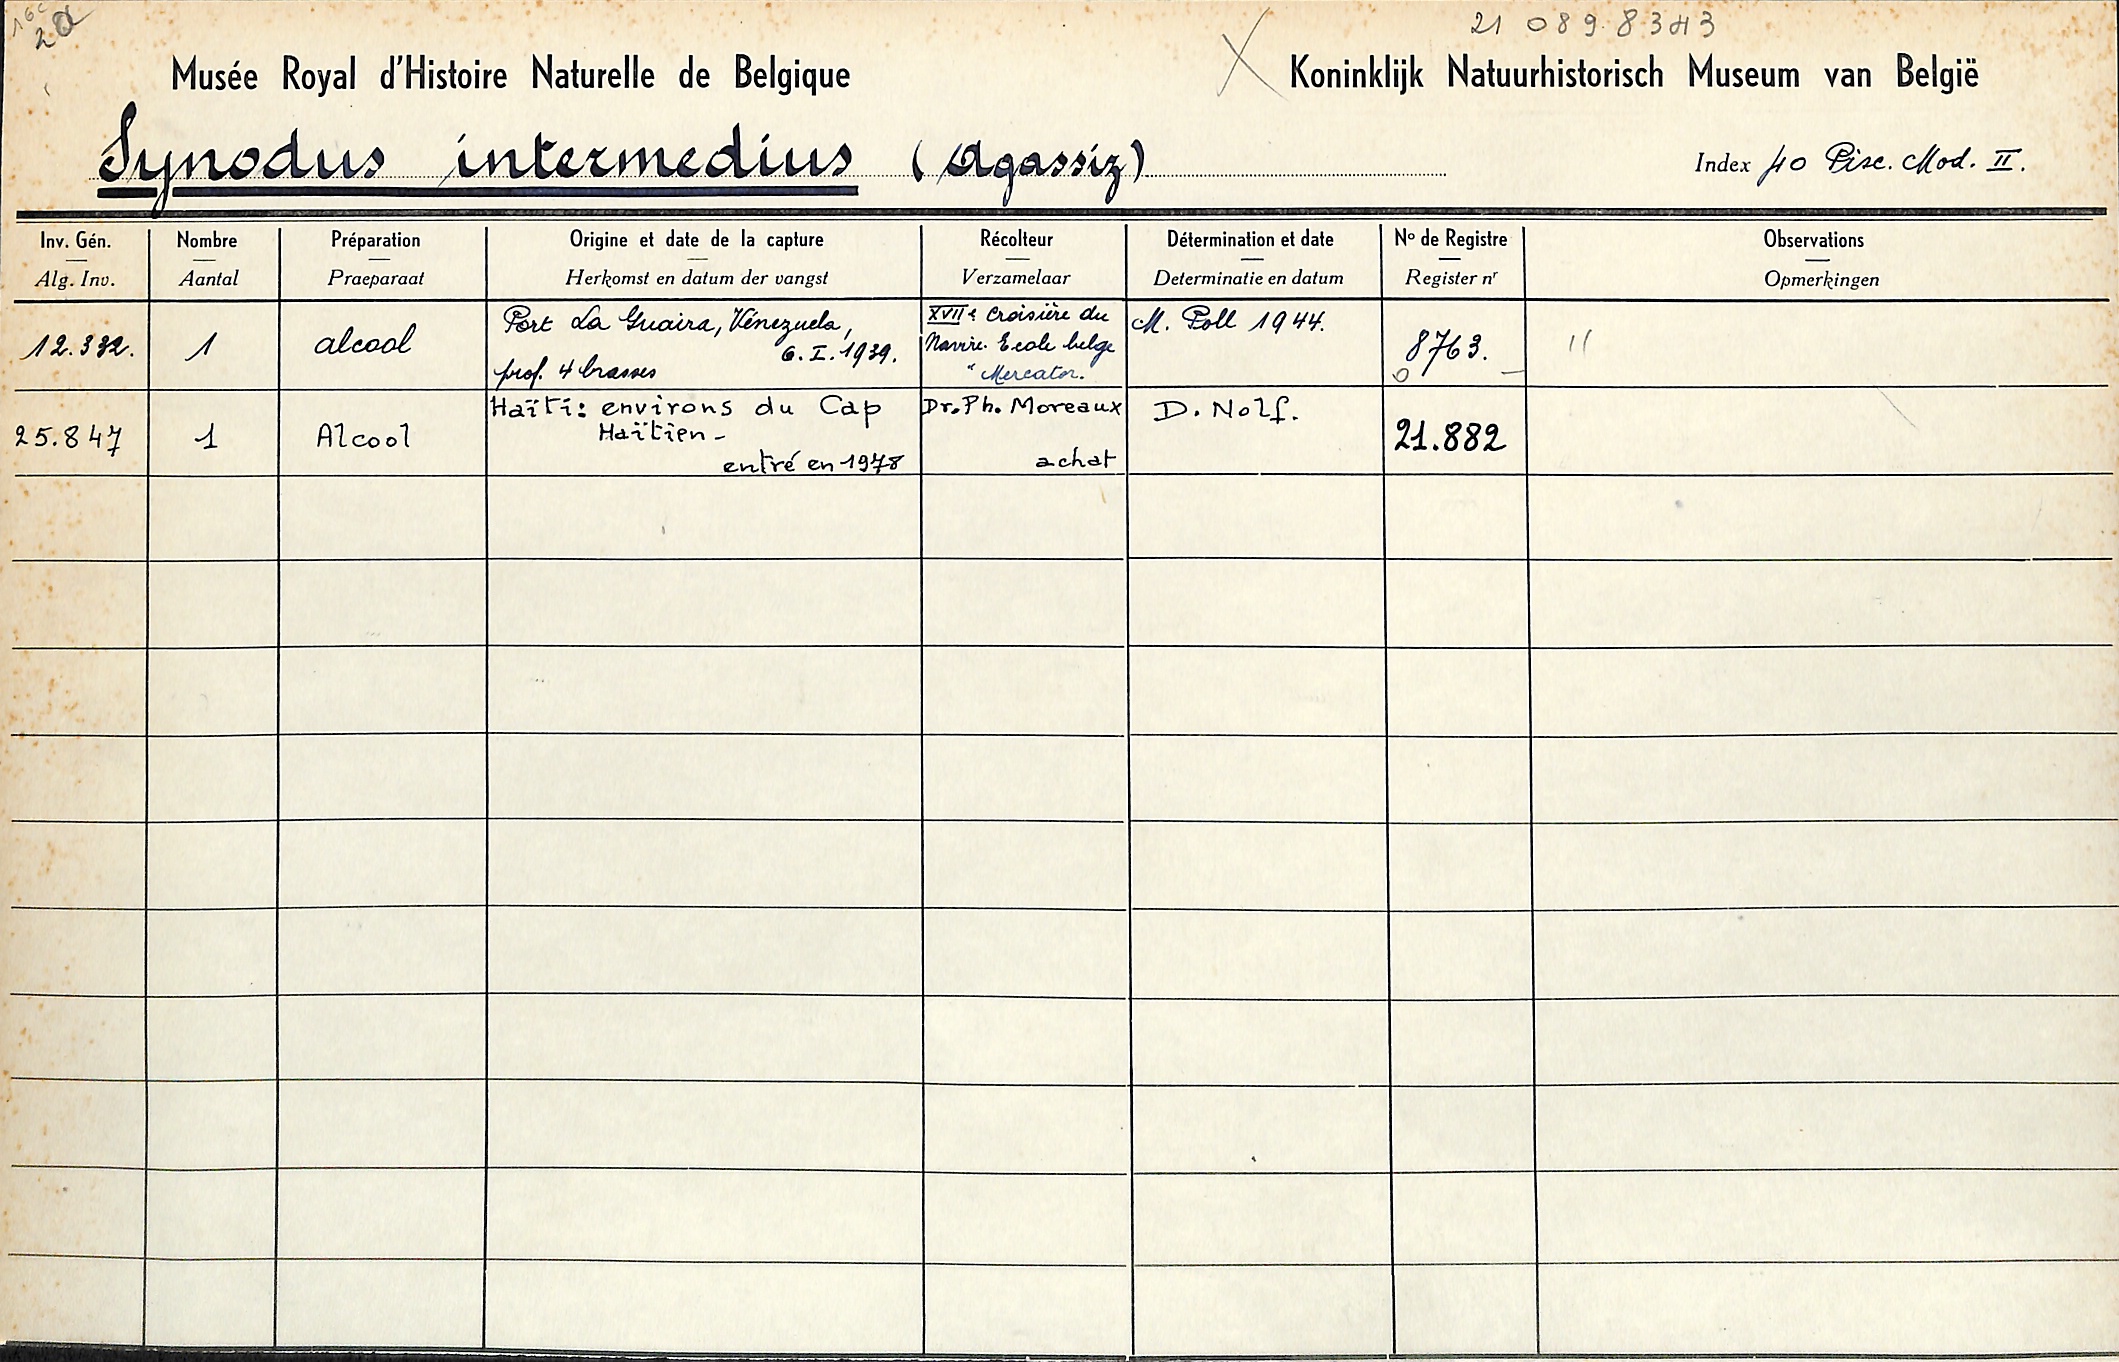 20
21 089.8343
Musée Royal d'Histoire Naturelle de Belgique
Koninklijk Natuurhistorisch Museum van België
Synodus intermedius (Agassiz)
Index 40 Pisc. Mod. II.
Inv. Gén. Nombre Préparation Origine et date de la capture Récolteur Détermination et date No de Registre Observations
Alg. Inv. Aantal Praeparaat Herkomst en datum der vangst Verzamelaar Determinatie en datum Register nr Opmerkingen
12.332. 1 alcool
Port La Guaira, Vénezuela,
6.I.1939.
prof. 4 brasses
XVIIe Croisière du
Navire. Ecole belge
"Mercator.
M. Poll 1944.
8763.
"
25.847 1 Alcool
Haïti: environs du Cap
Haïtien -
entré en 1978
Dr. Ph. Moreaux
achat
D. Nolf.
21.882